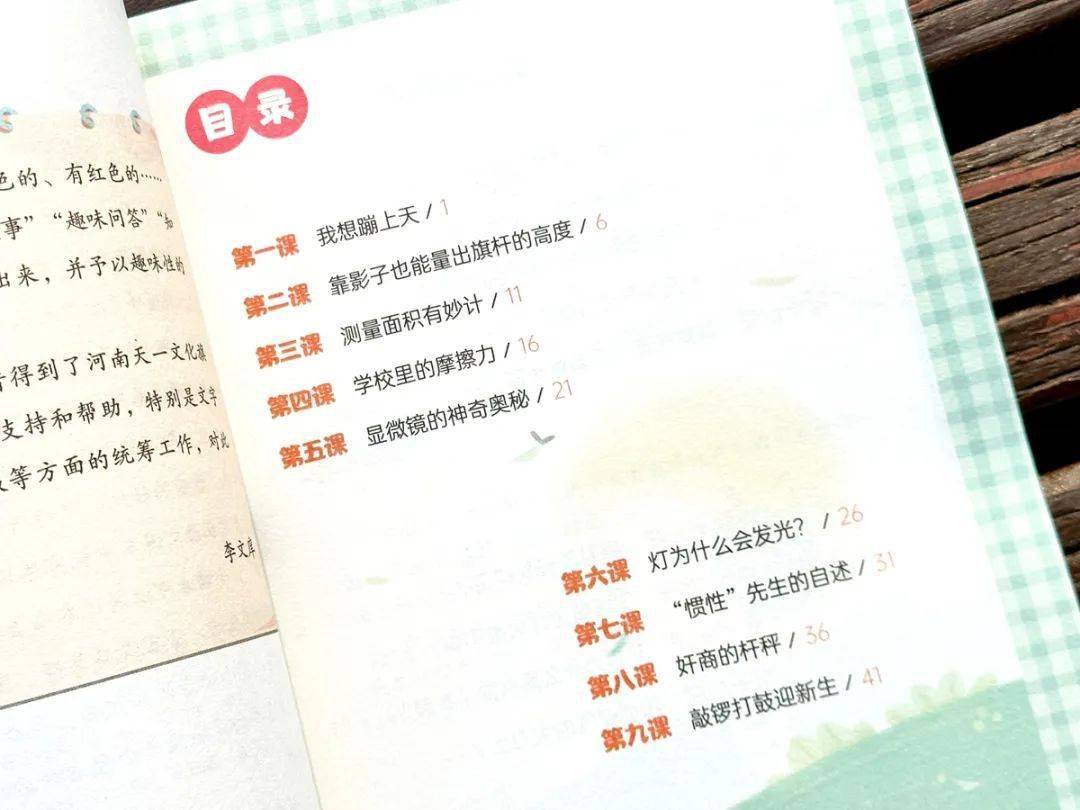 色的、有红色的……
事” “趣味问答” “知
出来，并予以趣味性的
得到了河南天一文化旗
支持和帮助，特别是文字
等方面的统筹工作，对此
李文库
目录
第一课 我想蹦上天 / 1
第二课 靠影子也能量出旗杆的高度 / 6
第三课 测量面积有妙计 / 11
第四课 学校里的摩擦力 / 16
第五课 显微镜的神奇奥秘 / 21
第六课 灯为什么会发光？ / 26
第七课 “惯性”先生的自述 / 31
第八课 奸商的杆秤 / 36
第九课 敲锣打鼓迎新生 / 41